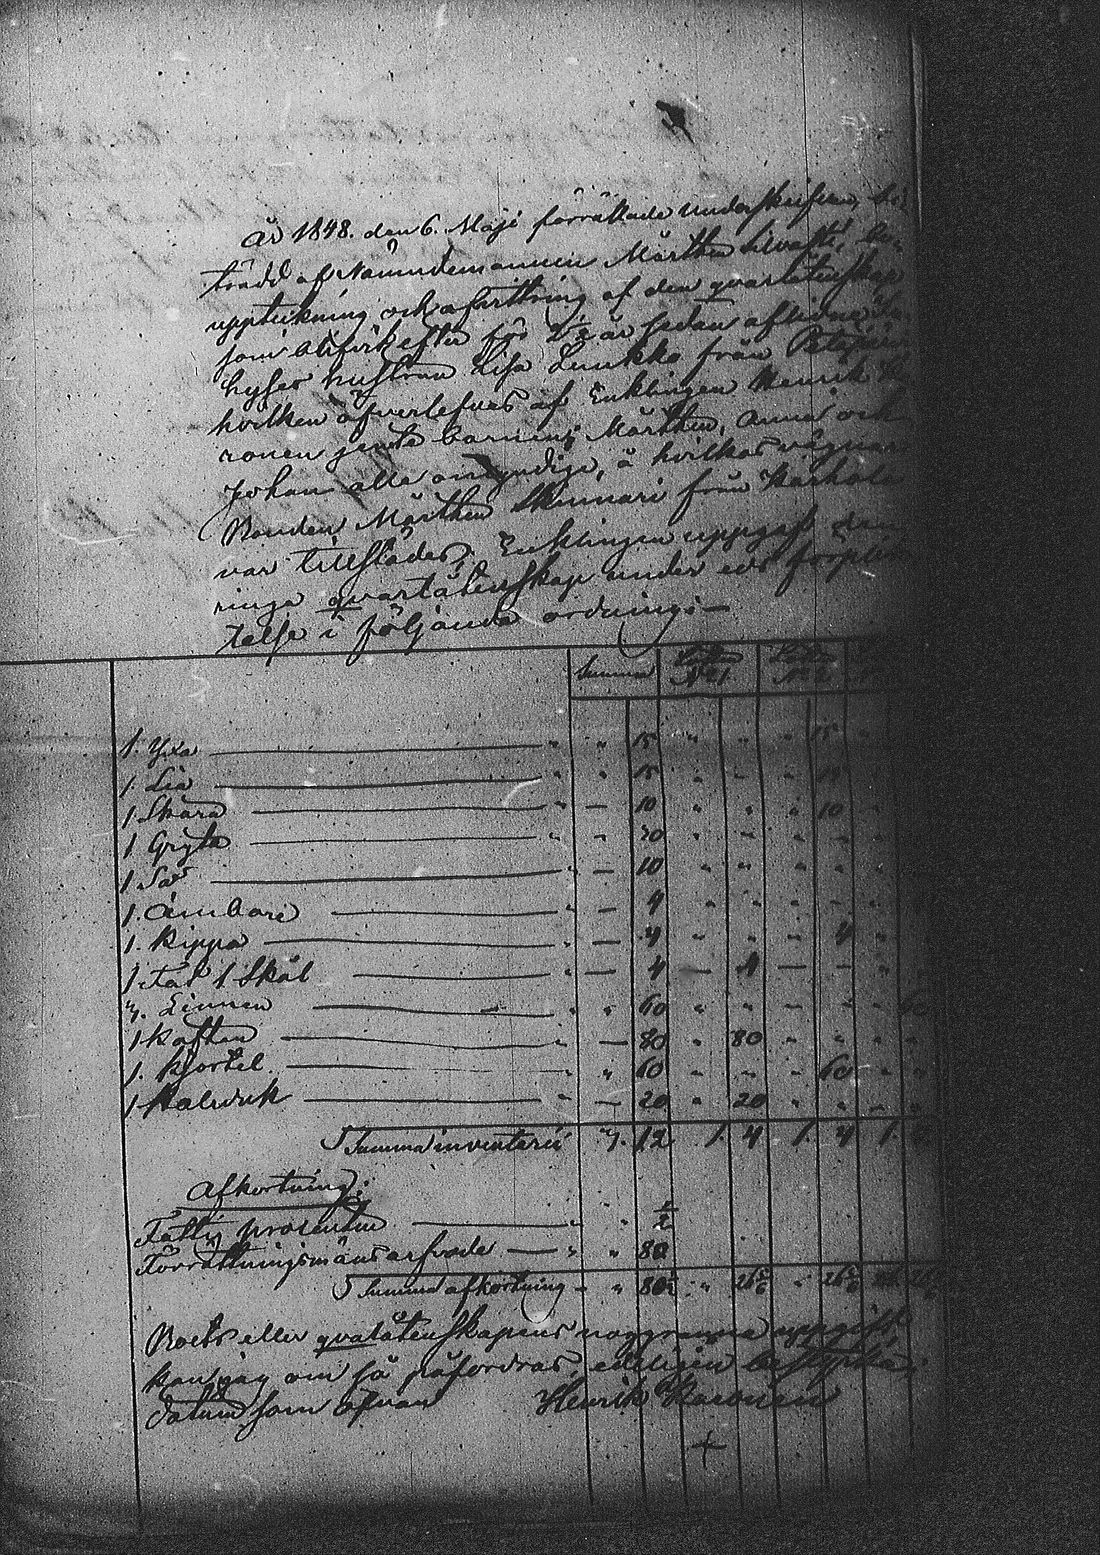 År 1848. den 6. Maji förrättade underskrifven, bi-
trädd af Nämndemannen Mårthen
uppteckning och afvittring af den qvarlåtenskap
som blifvit efter för 2½ år sedan aflidne In-
hyses hustrun Lisa Lunkka från
hvilken öfverlefves af Enklingen Henrik
ronen jemte barnen; Mårthen, Anna och
Johan alla omyndige, å hvilkas vägnar
Bonden Mårthen Skinnari från
var tillstädes; Enklingen uppgaf den
ringa qvarlåtenskap under eds förplik-
telse i följande ordning:
Summa Lotten N:o 1 Lotten N:o 2
1. Yxa " " 15 " " " 15
1. Lia " " 15 " " " 15
1 Skära " — 10 " " " 10 "
1 Gryta " " 20 " " " "
1 Så " — 10 " " " "
1. Ämbare " — 4 " " " "
1. Kippa " — 4 " " " 4 "
1 Fat 1 Skål " — 4 — 4 — — "
3. Linnen " " 60 " " " " " 60
1 Kaftan " — 80 " 80 " " "
1. Kjortel " " 60 " " " 60 " "
1 Halsduk " — 20 " 20 " " " "
Summa inventarii 3. 12 1. 4 1. 4 1. 4
Afkortning:
Fattig procenten " " ½
Förrättningsmäns arfvode — " " 80
Summa afkortning " " 80½ " 26 5/6 " 26 5/6
Boets eller qvarlåtenskapens noggranna uppgift
kan jag om så påfordras, edeligen bestyrka,
datum som ofvan Henrik Karonen
+